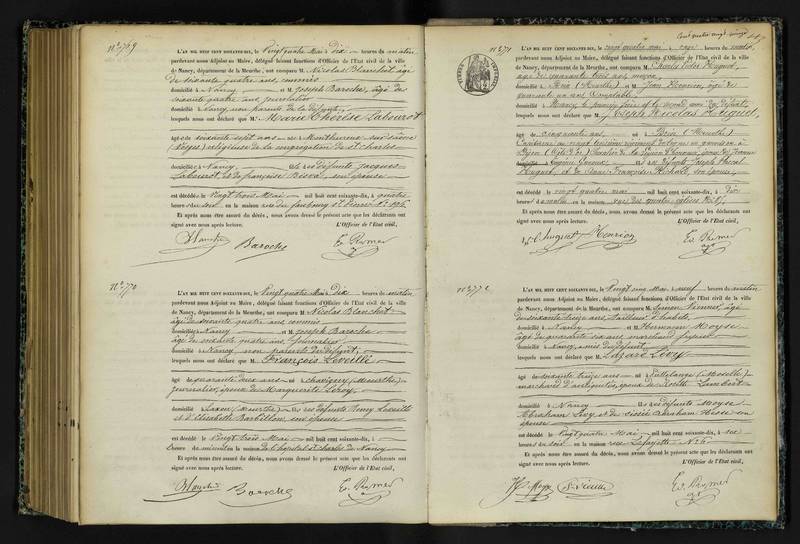 N° 769
L'AN MIL HUIT CENT SOIXANTE-DIX, le vingt quatre Mai à Dix heures du matin
pardevant nous Adjoint au Maire, délégué faisant fonctions d'Officier de l'Etat civil de la ville
de Nancy, département de la Meurthe, ont comparu M. Nicolas Blanchot âgé
de soixante quatre ans, commis
domicilié à Nancy et M. Joseph Baroche, âgé de
soixante quatre ans journalier
domicilié à Nancy, non parents de la défunte,
lesquels nous ont déclaré que M. Marie Thérèse Labourot
âgée de soixante sept ans née à Monthureux sur Saône
(Vosges) religieuse de la congrégation de St Charles
domiciliée à Nancy fille de défunts Jacques
Labourot, et de françoise son épouse
est décédée le vingt trois Mai mil huit cent soixante-dix, à quatre
heures du soir en la maison rue du faubourg St Pierre
Et après nous être assuré du décès, nous avons dressé le présent acte que les déclarants ont
signé avec nous après lecture. L'Officier de l'Etat civil,
Blanchot Baroche
N° 770
L'AN MIL HUIT CENT SOIXANTE-DIX, le vingt quatre Mai à Dix heures du matin
pardevant nous Adjoint au Maire, délégué faisant fonctions d'Officier de l'Etat civil de la ville
de Nancy, département de la Meurthe, ont comparu M. Nicolas Blanchot
âgé de soixante quatre ans commis
domicilié à Nancy et M. Joseph Baroche
âgé de soixante quatre ans, journalier
domicilié à Nancy non parents du défunt,
lesquels nous ont déclaré que M. François Léveillé
âgé de quarante deux ans né à Chavigny (Meurthe)
journalier, époux de Marguerite Leroy
domicilié à Laxou (Meurthe) fils de défunts
et d'Elisabeth Barbillon, son épouse
est décédé le vingt trois Mai mil huit cent soixante-dix, à
heure de en la maison de l'hôpital St Charles de Nancy
Et après nous être assuré du décès, nous avons dressé le présent acte que les déclarants ont
signé avec nous après lecture. L'Officier de l'Etat civil,
Blanchot Baroche
N° 771
L'AN MIL HUIT CENT SOIXANTE-DIX, le vingt quatre mai à onze heures du matin,
pardevant nous Adjoint au Maire, délégué faisant fonctions d'Officier de l'Etat civil de la ville
de Nancy, département de la Meurthe, ont comparu M. Charles Huguet,
âgé de quarante trois ans
domicilié à (Meurthe) et M. Jean Henrion, âgé de
quarante un ans comptable
domicilié à Nancy, le premier frère et le second ami du défunt,
lesquels nous ont déclaré que M. Joseph Nicolas Huguet,
âgé de cinquante ans né à (Meurthe)
Capitaine au vingt troisième régiment en garnison à
Dijon (Côte d'Or) Chevalier de la Légion d'honneur, époux de
fils de défunts Joseph
Huguet, et de son épouse
est décédé le vingt quatre mai mil huit cent soixante-dix, à dix
heures du matin en la maison rue des quatre églises
Et après nous être assuré du décès, nous avons dressé le présent acte que les déclarants ont
signé avec nous après lecture. L'Officier de l'Etat civil,
Huguet Henrion
N° 772
L'AN MIL HUIT CENT SOIXANTE-DIX, le vingt cinq Mai à neuf heures du matin
pardevant nous Adjoint au Maire, délégué faisant fonctions d'Officier de l'Etat civil de la ville
de Nancy, département de la Meurthe, ont comparu M. Simon âgé
de soixante treize ans, tailleur d'habits
domicilié à Nancy et M. Hermann Moyse
âgé de quarante six ans marchand
domicilié à Nancy, amis du défunt,
lesquels nous ont déclaré que M. Lazare Lévy
âgé de soixante treize ans né à Puttelange (Moselle)
marchand d'antiquités, époux de
domicilié à Nancy fils de défunts Moyse
Abraham Lévy et de Abraham son
épouse
est décédé le vingt quatre Mai mil huit cent soixante-dix, à six
heures du soir en la maison rue Lafayette N° 6
Et après nous être assuré du décès, nous avons dressé le présent acte que les déclarants ont
signé avec nous après lecture. L'Officier de l'Etat civil,